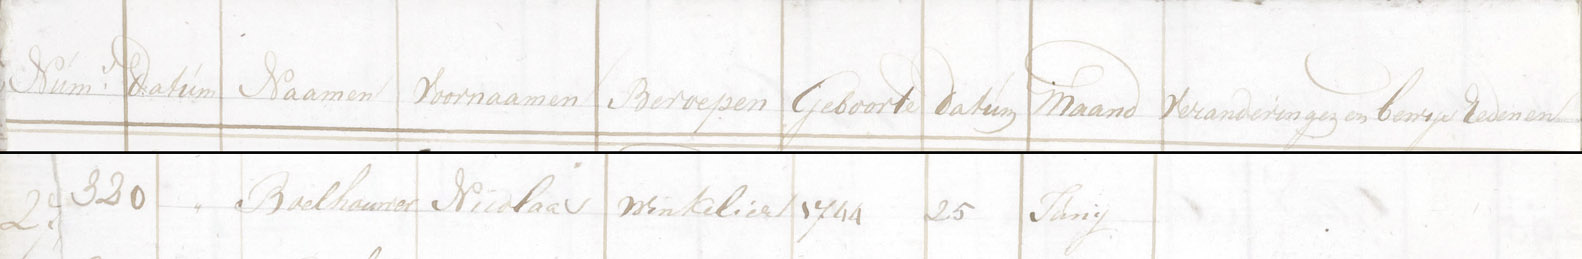 Num.r Datum Naamen Voornaamen Beroepen Geboorte Datum Maand Veranderingen en Redenen
320 " Boelhouwer Nicolaas Winkelier 1744 25 Junij